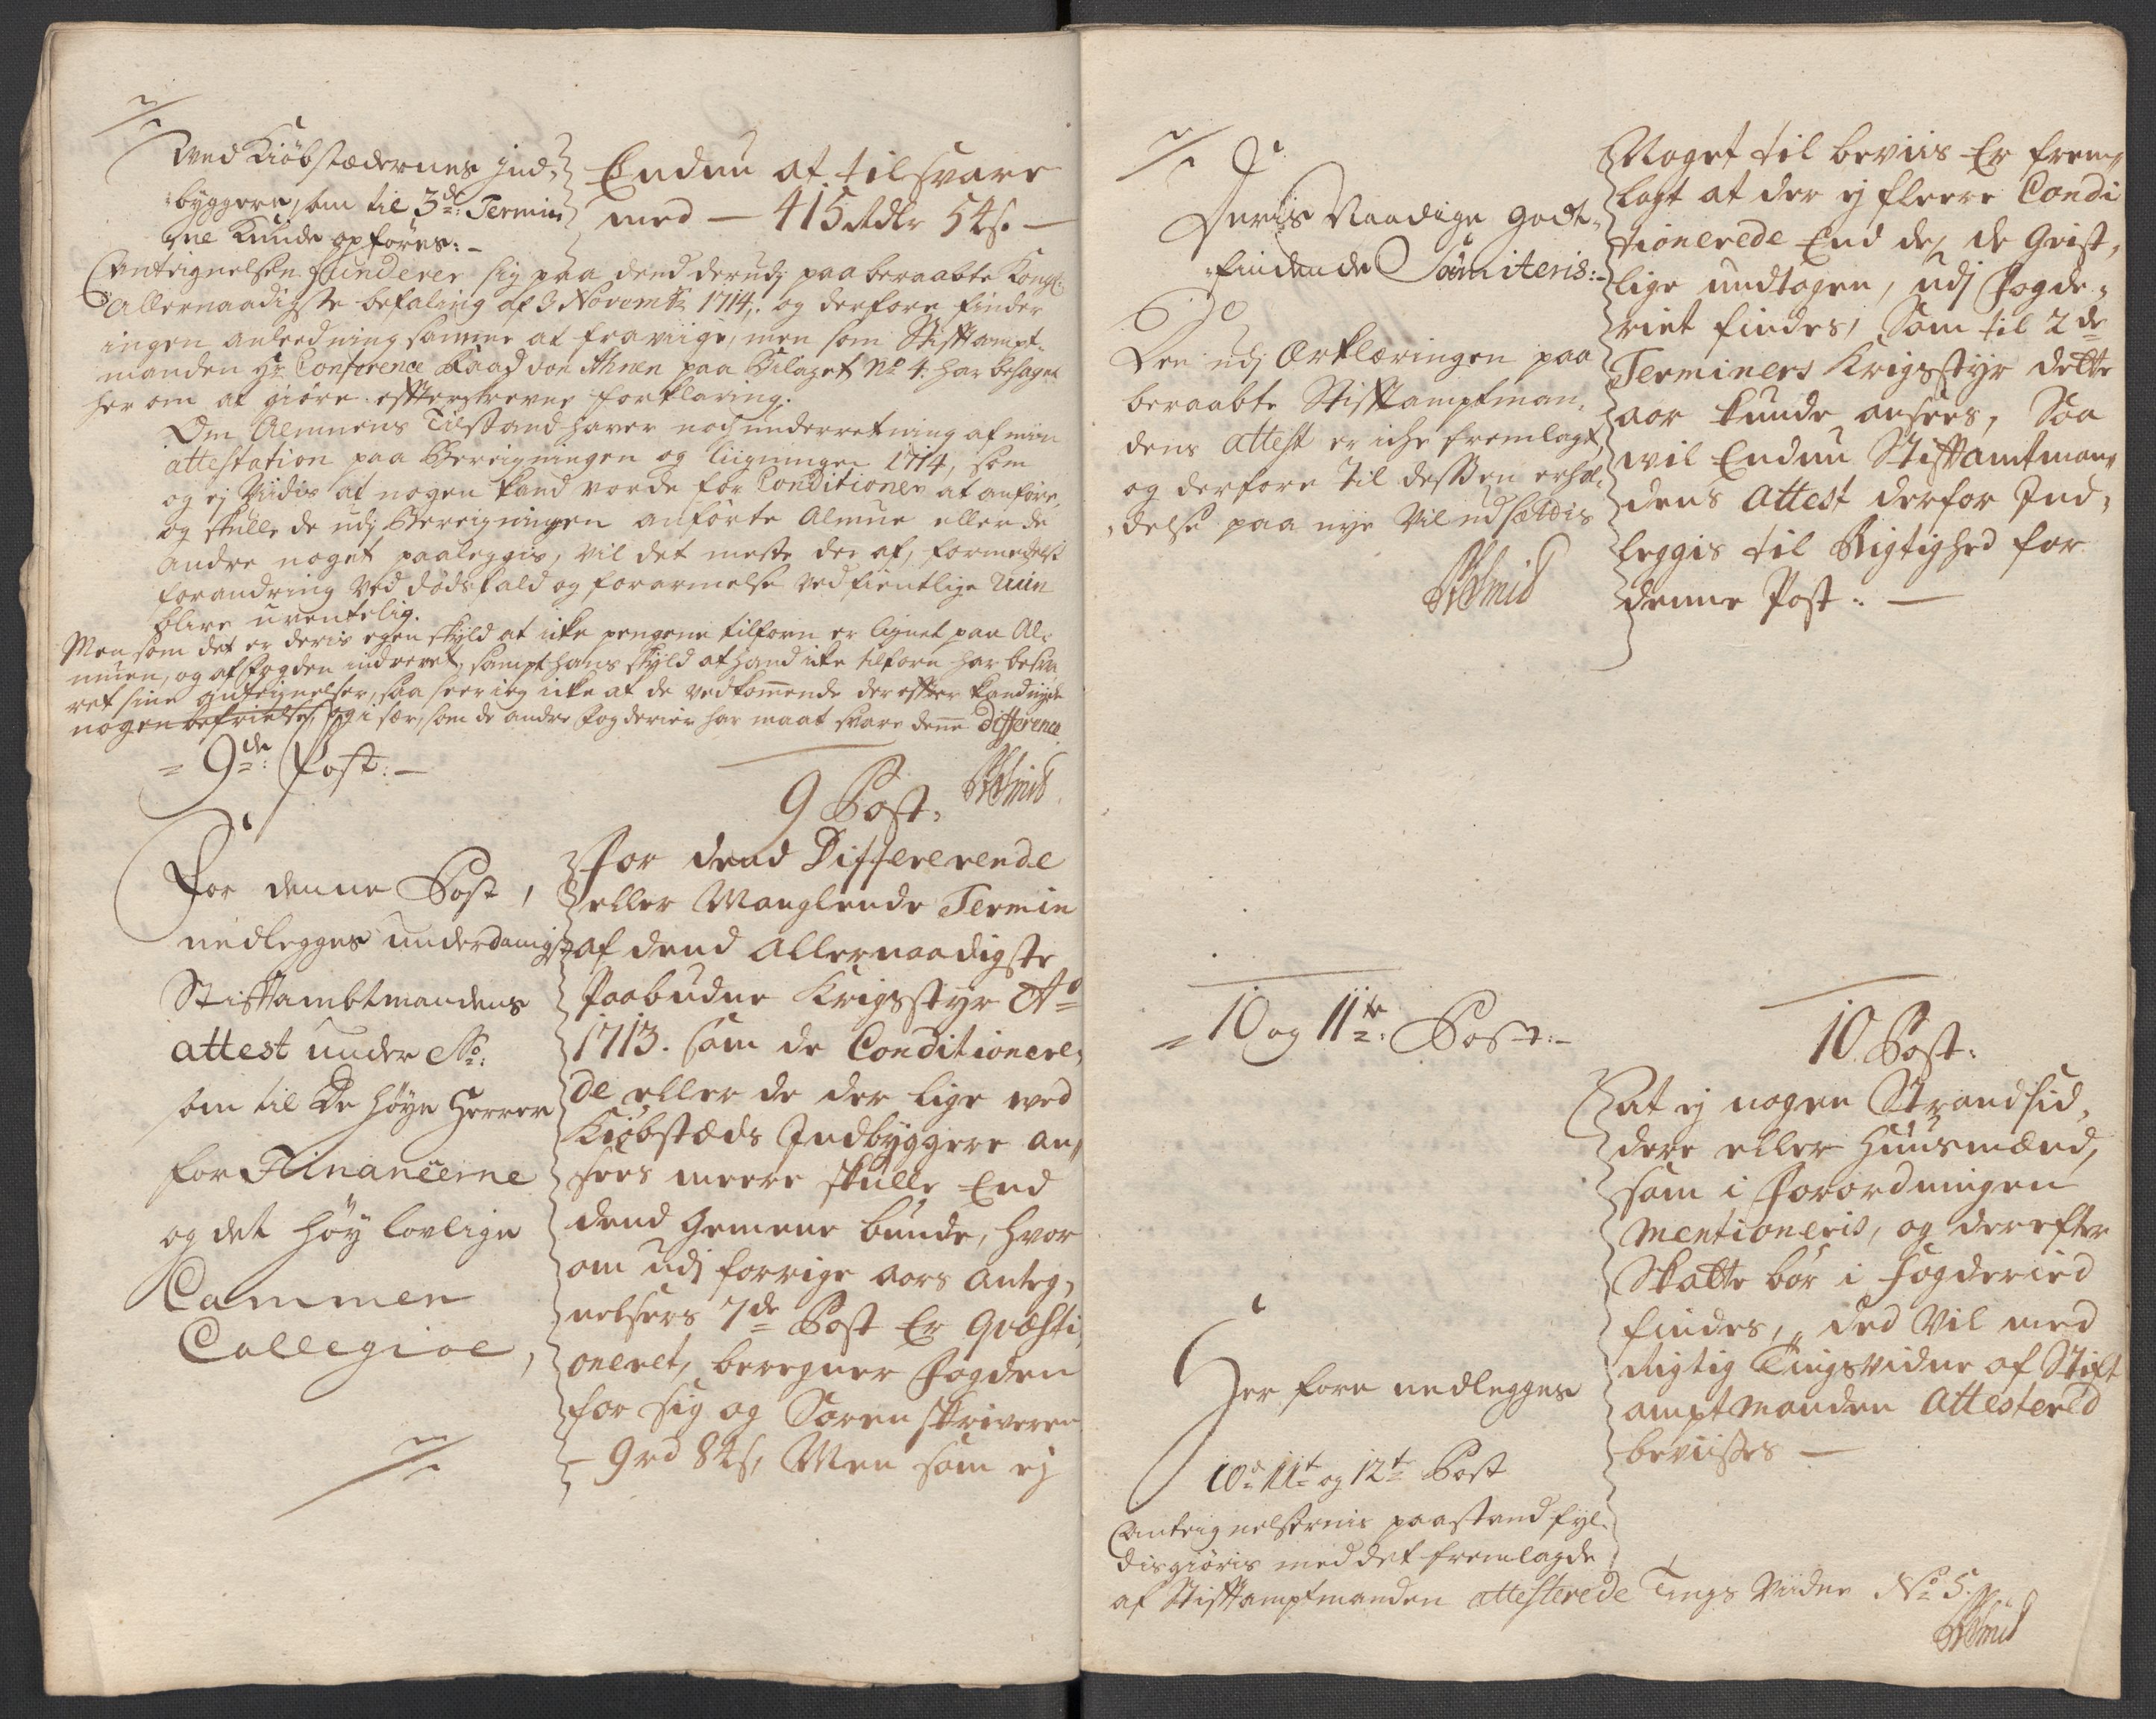 Wed Kiöbstædernes ind¬
byggere, som til 3de: Termin
ene Kunde opföres:-
Endnu at tilsvare
med - 415 Rdlr 54s. -
Anteignelsen funderer sig paa dend derudj paa beraabte Kongl:
Allernaadigste befaling af 3 Novembr 1714,. og derfore finder
ingen anleedning samme at fraviige, men som Stiftampt-
manden Hr Conference Raad von Ahnen paa Bilaget No 4: har behaget
her om at giöre effterskrevne forklaring.
Om Almuens Tilstand haver noch underretning af min
attestation paa Bereigningen og ligningen 1714, som
og ej Viidis at nogen kand vorde for Conditioner at anföre,
og skulle de udj Bereigningen anförte Almue eller de
andre noget paaleggis, vil det meste der af, formedelst
forandring ved dödsfald og forarmelse ved fientlige Ruin
blive uventelig.
Men som det er deris egen skyld at icke pengene tilforn er lignet paa Al¬
muen, og af fogden indcrevet, sampt hans skyld at hand icke tilforn har besva
ret sine Antegnelser, saa seer ieg icke at de vedkommende der effter kand nyde
nogen befrielse, og i sær, som de andre fogderier har maat svare denne Difference
= 9de: Post:-
9 Post.
For denne Post,
nedlegges underdanigst
Stiftambtmandens
attest under No:
som til De höye Herrer
for Financerne
og det höy lovlige
Cammer
Collegioe,
For dend Differerende
eller Manglende Termin
af dend allernaadigste
Paabudne Krigsstyr Ao
1713. som de Conditionere,
de eller de der lige med
Kiöbstæds Indbyggere an¬
sees meere skulle End
dend gemene bunde, hvor
om udj forrige aars Anteg,
nelsers 7de Post Er Qvæsti
oneret, beregner Fogden
for sig og Sorenskriveren
- 9rd 84s, Men som ej
Deris Naadige godt-
findende Sumiteris:-
Den udj Erklæringen paa
beraabte Stifftamptman,
dens attest er iche fremlagt,
og derfore til dessen erhol,
delse paa nye Vil udsættis
Noget til beviis Er frem¬
lagt at der ej fleere Condi
tionerede End de, de Geist,
lige undtagen, udj Fogde,
riet findes, som til 2de
Terminers Krigsstyr dette
aar kunde ansees, Saa
wil Endnu Stifftamtman¬
dens Attest derfor Ind,
leggis til Rigtighed for
denne Post. -
= 10 og 11te: Post:-
10. Post.
at ej nogen Strandsid,
dere eller Huusmænd,
som i Forordningen
Mentioneris, og derefter
Skatte bör i Fogderied
findes, ded Vil med
Rigtig Tingsvidne af Stift
amptmanden Attestered
beviises -
Her fore nedlegges
10de 11te og 12te Post
Anteignelsernis paastand fyl¬
disgiöris med det fremlagde
af Stifftamptmanden attesterede Tings Vidne No 5.